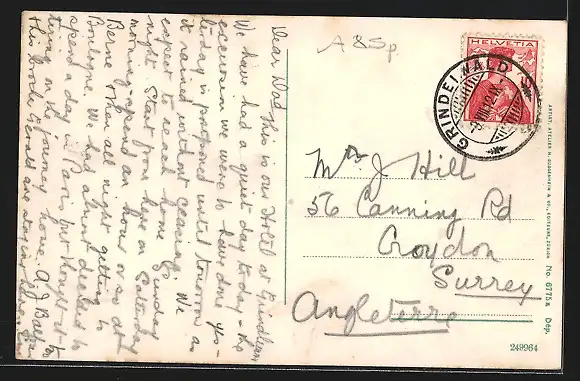 Dear Dad this is our Hotel at Grindlewn
We have had a quiet day today - the
excursion we were to have done yes-
terday is postponed until tomorrow as
it rained without ceasing. We
expect to reach home Sunday
night. Start from here on Saturday
morning spend an hour or so at
Berne & then all night getting to
Boulogne. We had almost decided to
spend a day in Paris, but thought it
tiring on the journey home. A.J. Bat
this
are staying here
A & Sp
HELVETIA
GRINDELWALD
Mr J Hill
56 Canning Rd
Croydon
Surrey
Angleterre
No. 6775a Dép.
249964